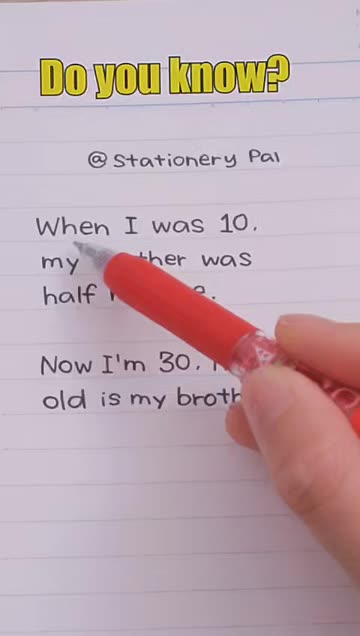 Do you know?
@ Stationery Pal
When I was 10,
my was
half
Now I'm 30.
old is my